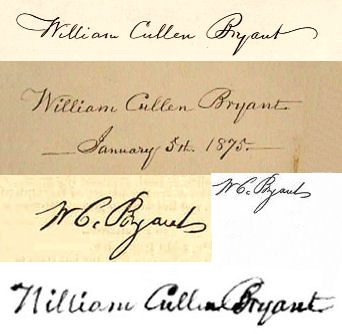 William Cullen Bryant
William Cullen Bryant.
—January 5th. 1875.—
W. C. Bryant
W. C. Bryant
William Cullen Bryant.